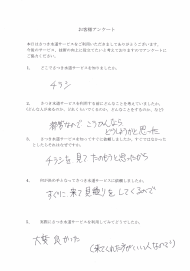 お客様アンケート
本日はさつき水道サービスをご利用いただきましてありがとうございます。
今後のサービス、技術の向上に役立てたいと考えておりますのでアンケートに
ご協力ください。
1. どこでさつき水道サービスを知りましたか。
チラシ
2. さつき水道サービスを利用する前にどんなことを考えていましたか。
どうしようかと思った
3. さつき水道サービスにすぐに依頼しましたか。
チラシを見てたのもうと思ったから
4. 何が決め手となってさつき水道サービスに依頼しましたか。
すぐに来て見積りをしてくるので
5. 実際にさつき水道サービスを利用してみてどうでしたか。
大変良かった
(来てくれた方がいい人なので)